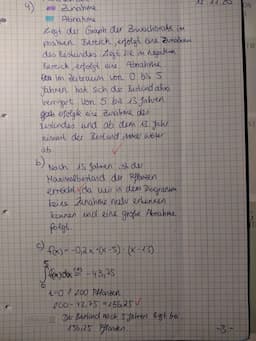 4) Zunahme
Abnahme
Liegt der Graph der Zuwachsrate im
positiven Bereich, erfolgt eine Zunahme
des Bestandes. Liegt sie im negativen
Bereich, erfolgt eine Abnahme.
Im Zeitraum von 0 bis 5
Jahren hat sich der Bestand also
verringert. Von 5 bis 13 Jahren
erfolgte eine Zunahme des
Bestandes und ab dem 13. Jahr
nimmt der Bestand wieder
ab.
b) Nach 13 Jahren ist der
Maximalbestand der Pflanzen
erreicht, da wir in dem Diagramm
keine Zunahme mehr erkennen
können und eine große Abnahme
folgt.
c) f(x) = -0,2x · (x-5) · (x-13)
∫ f(x)dx = -43,75
t=0 ≙ 200 Pflanzen
200-43,75 = 156,25
Der Bestand nach 5 Jahren liegt bei
156,25 Pflanzen.
-3-